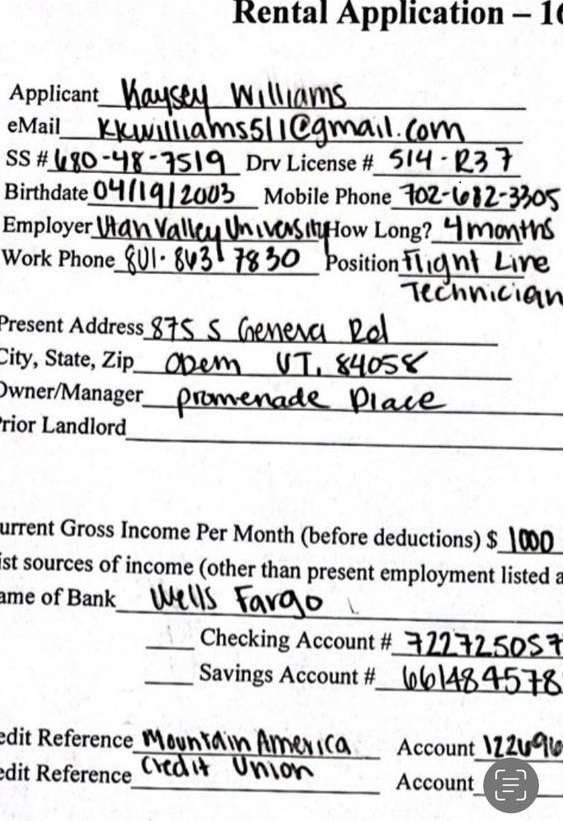 Rental Application – 1
Applicant Kaysey Williams
eMail kkwilliams511@gmail.com
SS # 680-48-7519 Drv License # 514-R37
Birthdate 04/19/2003 Mobile Phone 702-682-3305
Employer Utah Valley University How Long? 4 months
Work Phone 801-863 7830 Position Flight Line
Technician
Present Address 875 S Geneva Rd
City, State, Zip Orem UT, 84058
Owner/Manager promenade Place
rior Landlord
urrent Gross Income Per Month (before deductions) $ 1000
ist sources of income (other than present employment listed a
ame of Bank Wells Fargo
Checking Account # 722725057
Savings Account # 661484578
edit Reference Mountain America Account 122696
edit Reference Credit Union Account